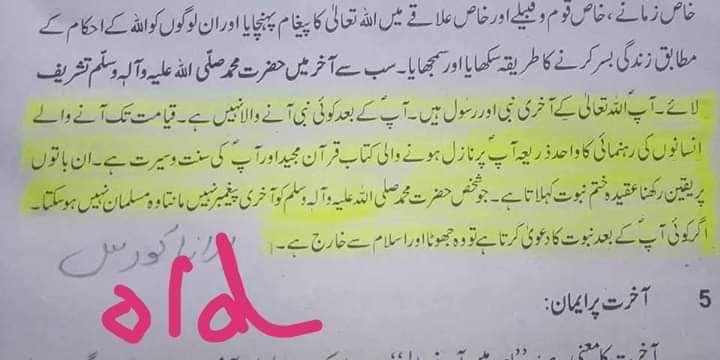 خاص زمانے، خاص قوم و قبیلے اور خاص علاقے میں اللہ تعالیٰ کا پیغام پہنچایا اور ان لوگوں کو اللہ کے احکام کے
مطابق زندگی بسر کرنے کا طریقہ سکھایا اور سمجھایا۔ سب سے آخر میں حضرت محمد صلّی اللہ علیہ وآلہٖ وسلّم تشریف
لائے۔ آپؐ اللہ تعالیٰ کے آخری نبی اور رسول ہیں۔ آپؐ کے بعد کوئی نبی آنے والا نہیں ہے۔ قیامت تک آنے والے
انسانوں کی رہنمائی کا واحد ذریعہ آپؐ پر نازل ہونے والی کتاب قرآن مجید اور آپؐ کی سنت و سیرت ہے۔ ان باتوں
پر یقین رکھنا عقیدہ ختم نبوت کہلاتا ہے۔ جو شخص حضرت محمد صلی اللہ علیہ وآلہ وسلم کو آخری پیغمبر نہیں مانتا وہ مسلمان نہیں ہو سکتا۔
اگر کوئی آپؐ کے بعد نبوت کا دعویٰ کرتا ہے تو وہ جھوٹا اور اسلام سے خارج ہے۔
کورس
old
5 آخرت پر ایمان: